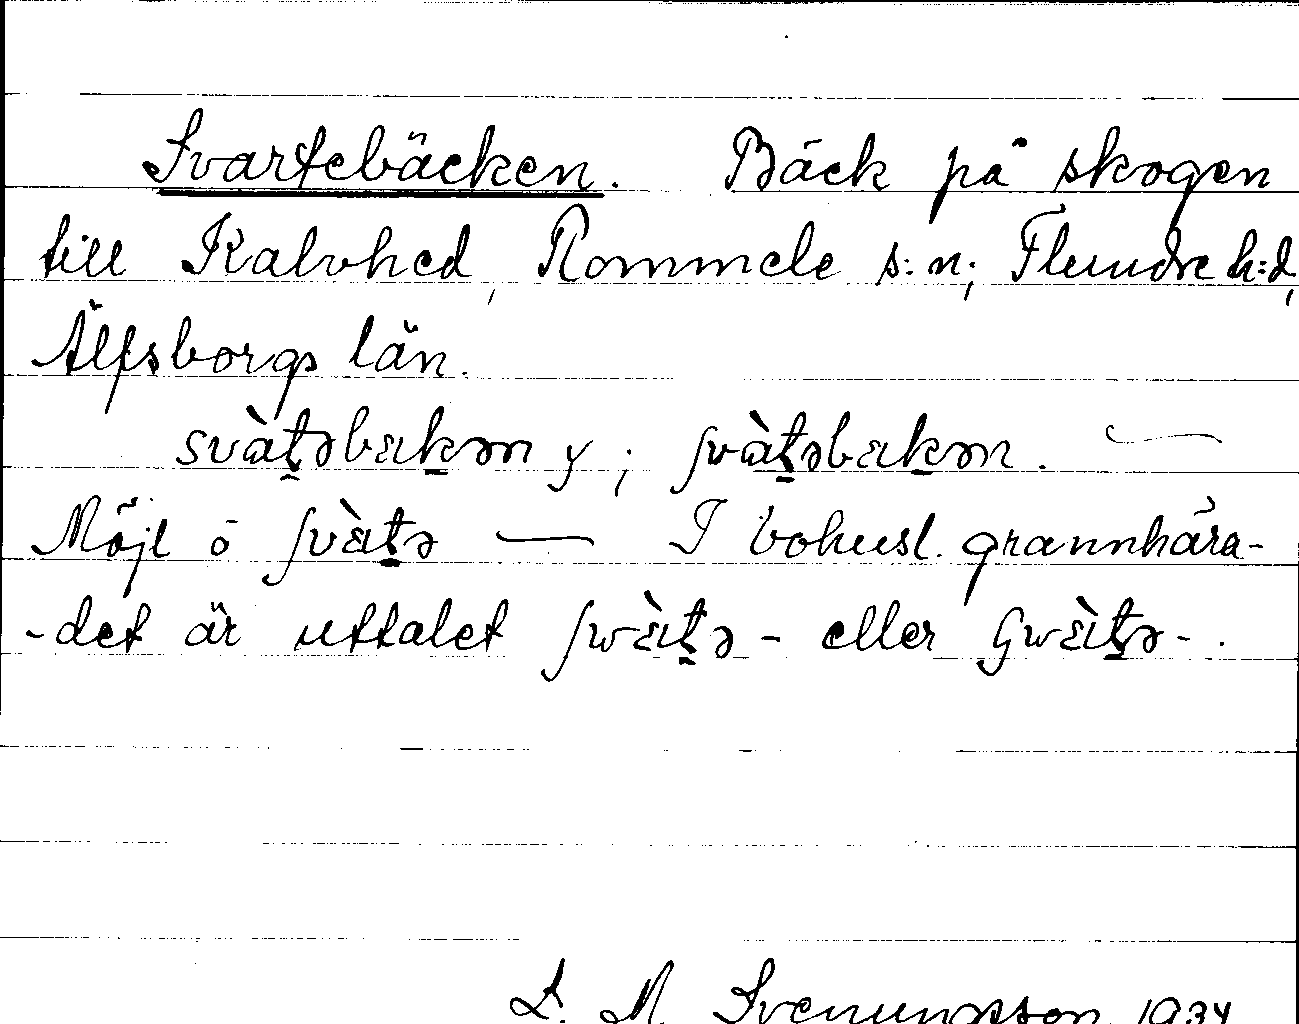 Svartebäcken. Bäck på skogen
till Kalvhed, Rommele s:n; Flundre h:d,
Älfsborgs län.
svàt̠əbɛk̠ən y; ʃvàt̠əbɛk̠ən. —
Möjl ö ʃvɛ̀t̠ə — I bohusl. grannhära-
-det är uttalet ʃwɛ̀t̠ə- eller Gwɛ̀t̠ə-.
L. M. Svenungsson 1934